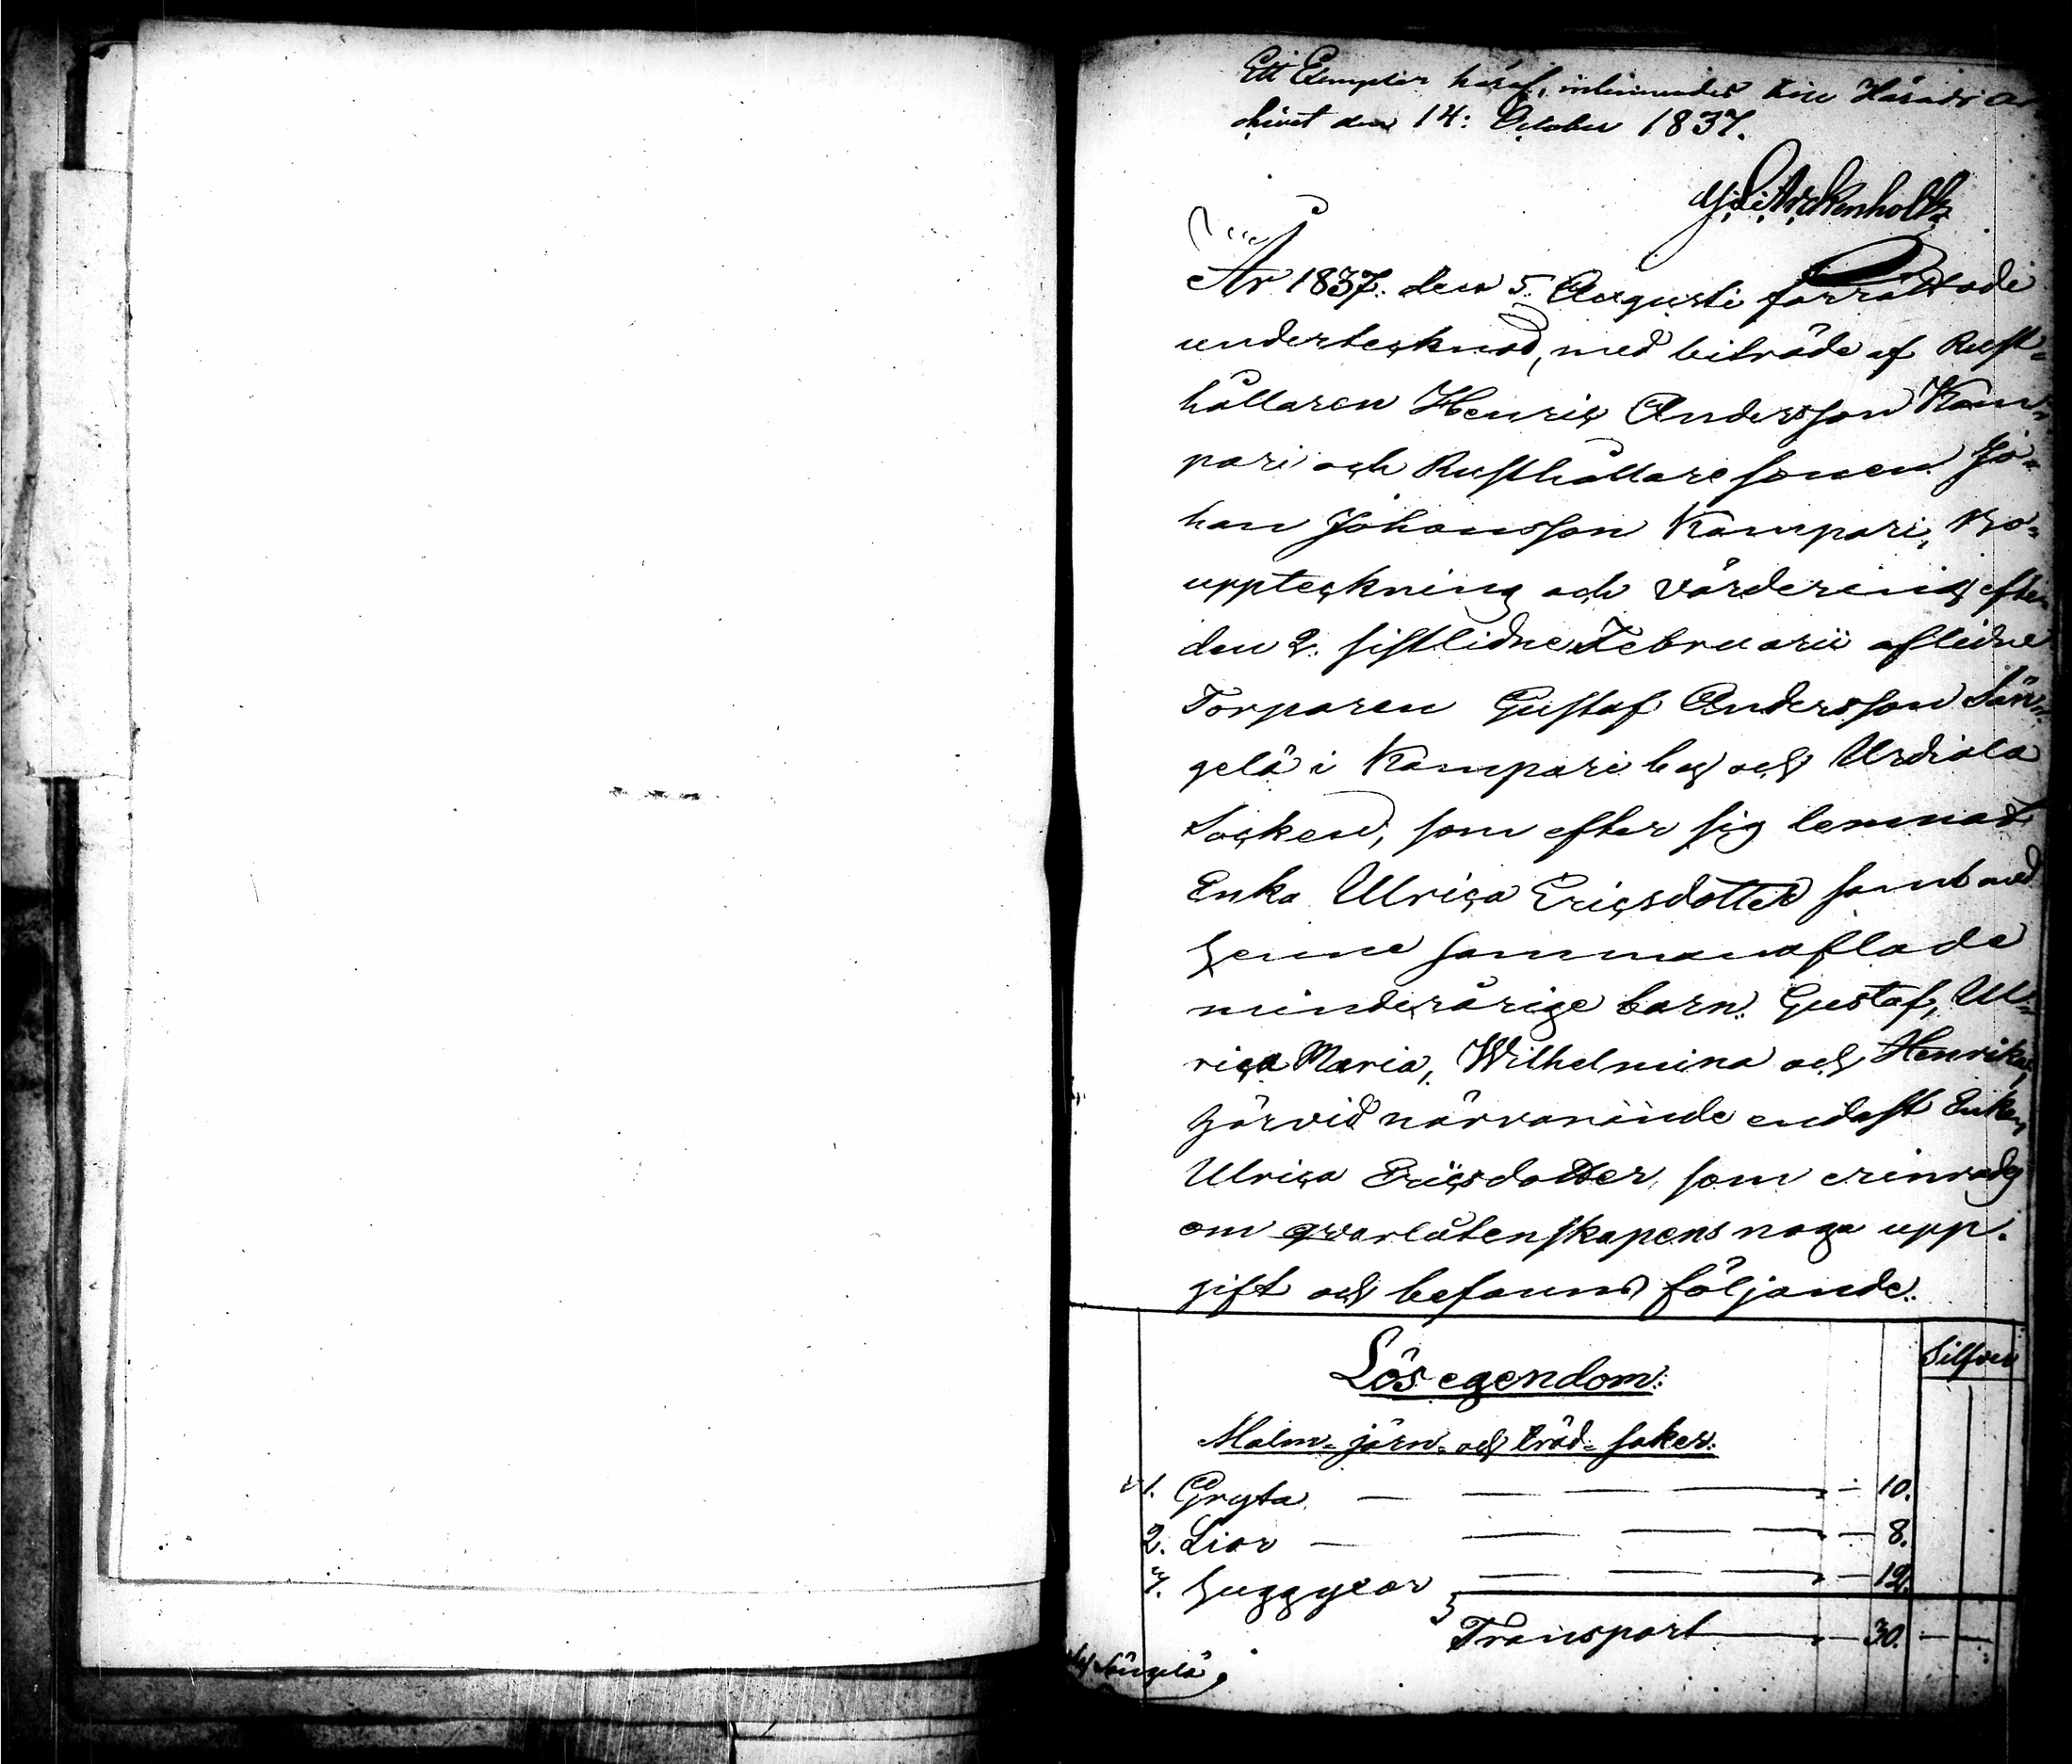 Ett Exemplar häraf, inlemnades till Härads ar
chivet den 14: October 1837.
Arckenholtz
År 1837. den 5. Augusti förrättade
undertecknad, med biträde af Rust=
hållaren Henric Andersson Käm=
pari och Rusthållaresonen Jo=
han Johansson Kämpari, Bo=
uppteckning och värdering efter
den 2. sistlidne Februarii aflidne
Torparen Gustaf Andersson Sän=
gelä i Kämpari by och Urdiala
Socken, som efter sig lemnat
Enka Ulrica Ericsdotter samt med
henne sammanaflade
minderårige barn: Gustaf, Ul=
rica Maria, Wilhelmina och Henrika,
härvid närvarande endast Enkan
Ulrica Ericsdotter, som erinrades
om qvarlåtenskapens noga upp=
gift och befanns följande:
Silfver
Lös egendom:
Malm- järn- och träd- saker:
1. Gryta — — — — 10.
2. Liar — — — — 8.
3. huggyxor — 12.
Transport — 30. — —
Sängelä